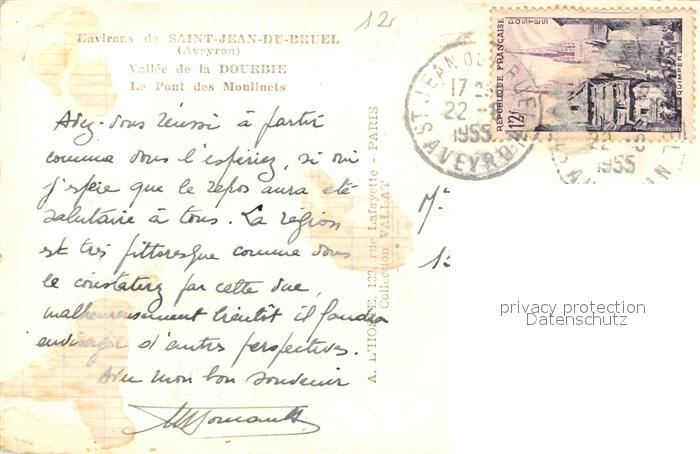 12
Environs de SAINT-JEAN-DU-BRUEL
(Aveyron)
Vallée de la DOURBIE
Le Pont des Moulinets
Avez-vous réussi à partir
comme vous l'espériez, si oui
j'espère que le repos aura été
salutaire à tous. La région
est très pittoresque comme vous
le constatez par cette vue,
malheureusement bientôt il faudra
envisager d'autres perspectives.
Avec mon bon souvenir
A. L'HOSTE, rue Lafayette - PARIS
Collection VALLAT
REPUBLIQUE FRANÇAISE
POSTES
QUIMPER
12f
ST JEAN DU BRUEL
17
22
1955
AVEYRON
22
1955
M.
privacy protection
Datenschutz